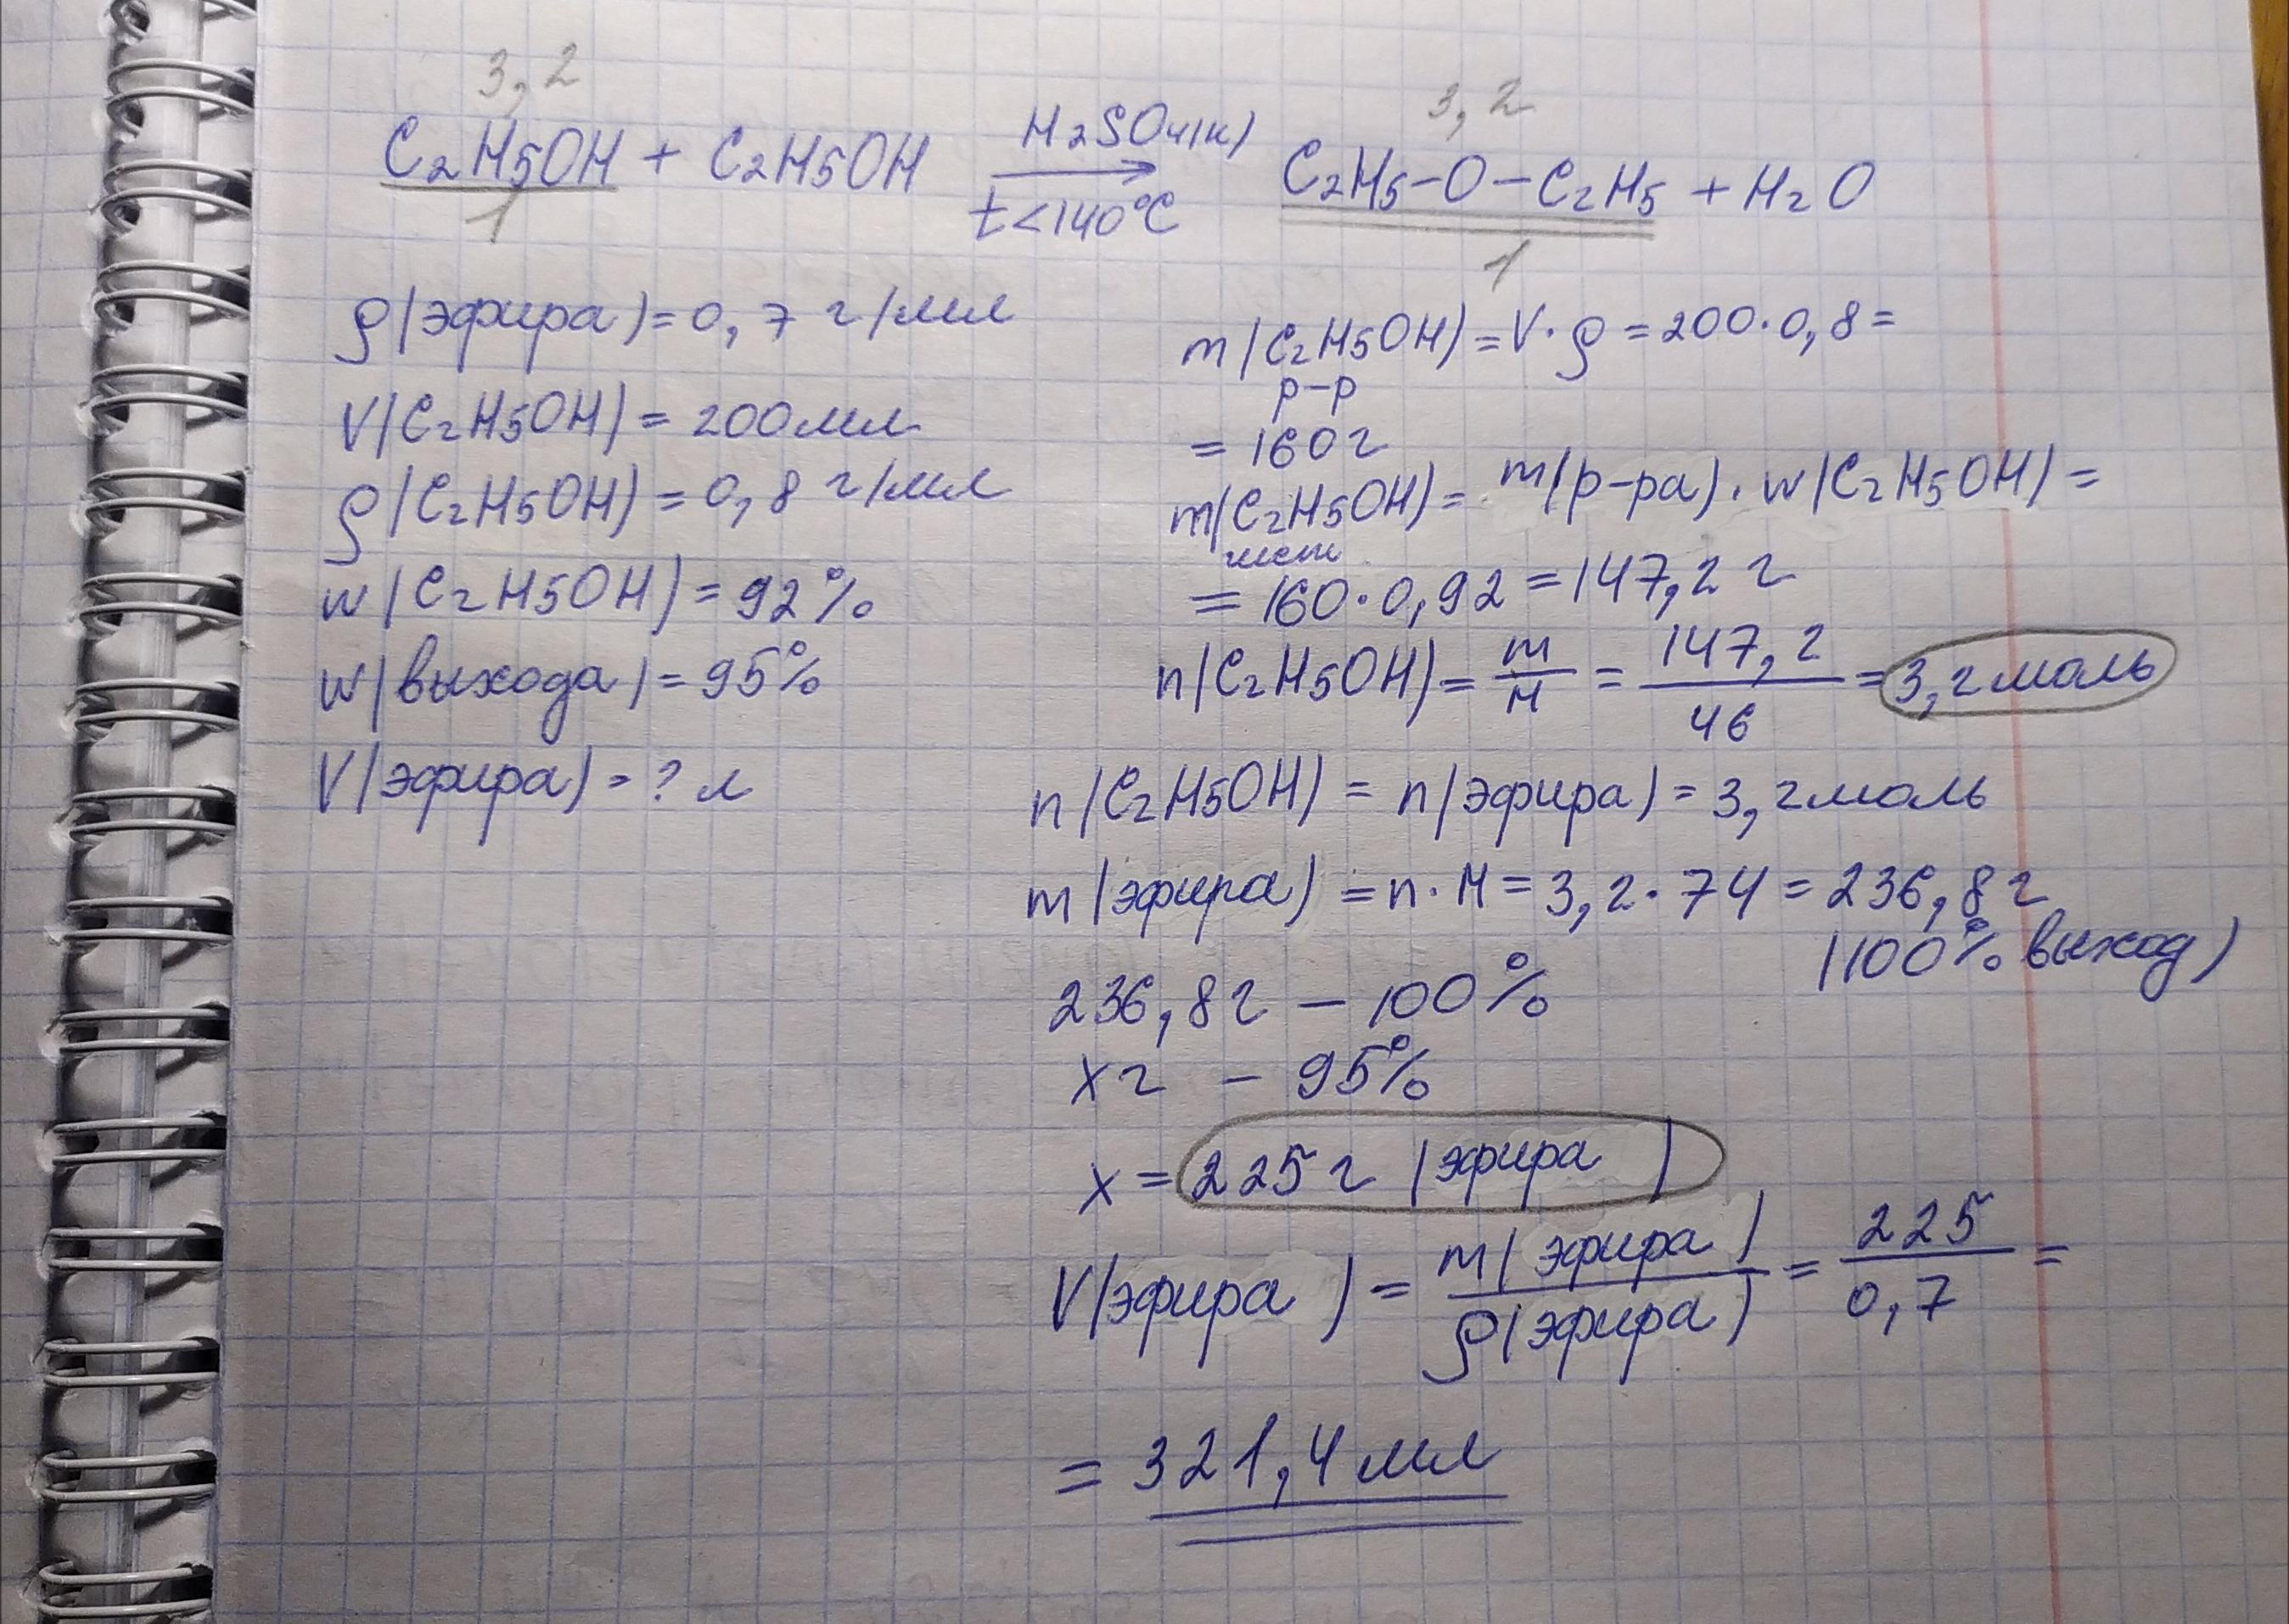 3,2
3,2
C₂H5OH + C₂H5OH H₂SO₄(к) t<140°C C₂H₅-O-C₂H₅ + H₂O
1
1
ρ(эфира)=0,7 г/мл
V(C₂H5OH)=200мл
ρ(C₂H5OH)=0,8 г/мл
w(C₂H5OH)=92%
w(выхода)=95%
V(эфира)=? л
m(C₂H5OH)=V·ρ=200·0,8=
р-р
=160г
m(C₂H5OH)=m(р-ра)·w(C₂H5OH)=
чист
=160·0,92=147,2 г
n(C₂H5OH)=m/M=147,2/46=3,2моль
n(C₂H5OH)=n(эфира)=3,2моль
m(эфира)=n·M=3,2·74=236,8г
(100% выход)
236,8г – 100%
xг – 95%
x=225г (эфира)
V(эфира)=m(эфира)/ρ(эфира)=225/0,7=
=321,4мл